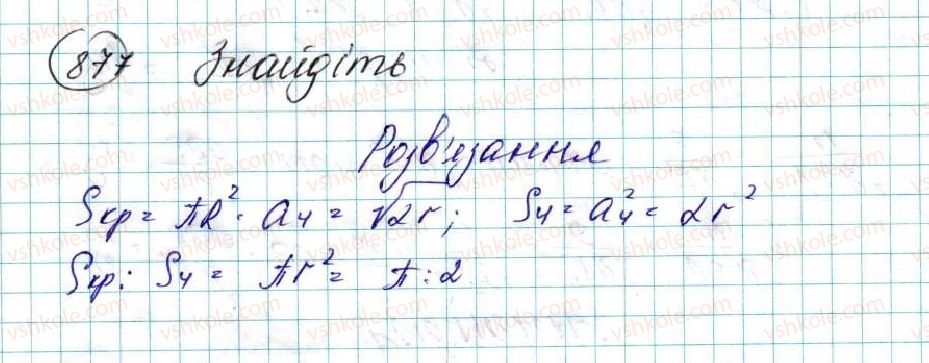 877 Знайдіть
Розв'язання
Sкр = πR². a₄ = √2r; S₄ = a₄² = 2r²
Sкр : S₄ = πr² = π : 2